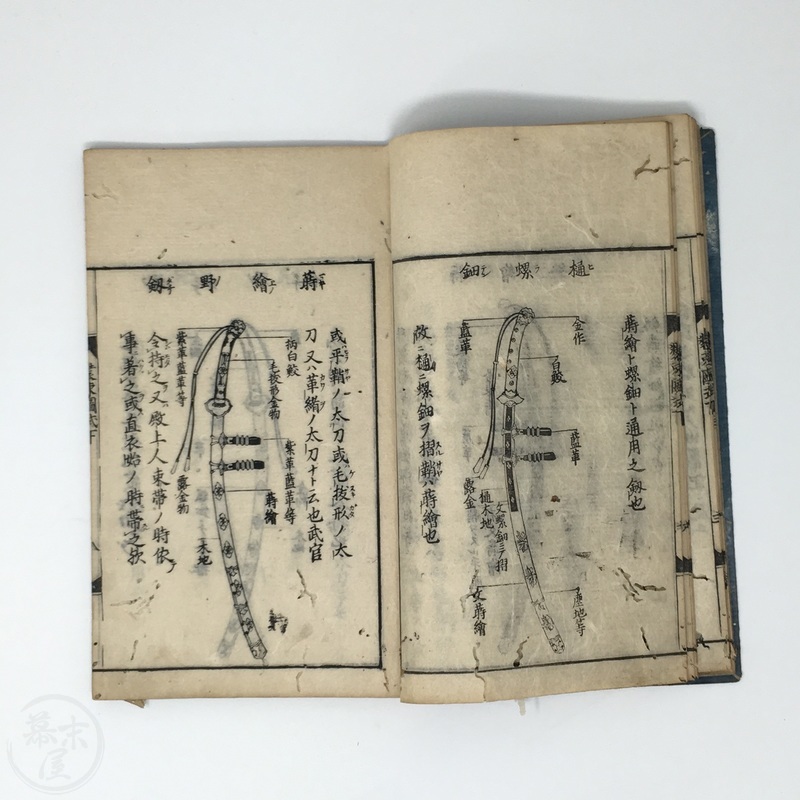 樋螺鈿
蒔繪ト螺鈿ト通用之劔也
金作
白鮫
藍革
藍革
露金
樋木地
文螺鈿ヲ摺
塵地等
文蒔繪
故ニ樋螺鈿ヲ摺鞘ハ蒔繪也
蒔繪野劔
或平鞘ノ太刀或毛抜形ノ太
刀又ハ革緒ノ太刀ナト云也武官
柄白鮫
毛抜形金物
紫革藍革等
蒔繪
紫革藍革等
露金物
木地
令持之又殿上人束帯ノ時依
事著之或直衣始ノ時帯之
幕末屋